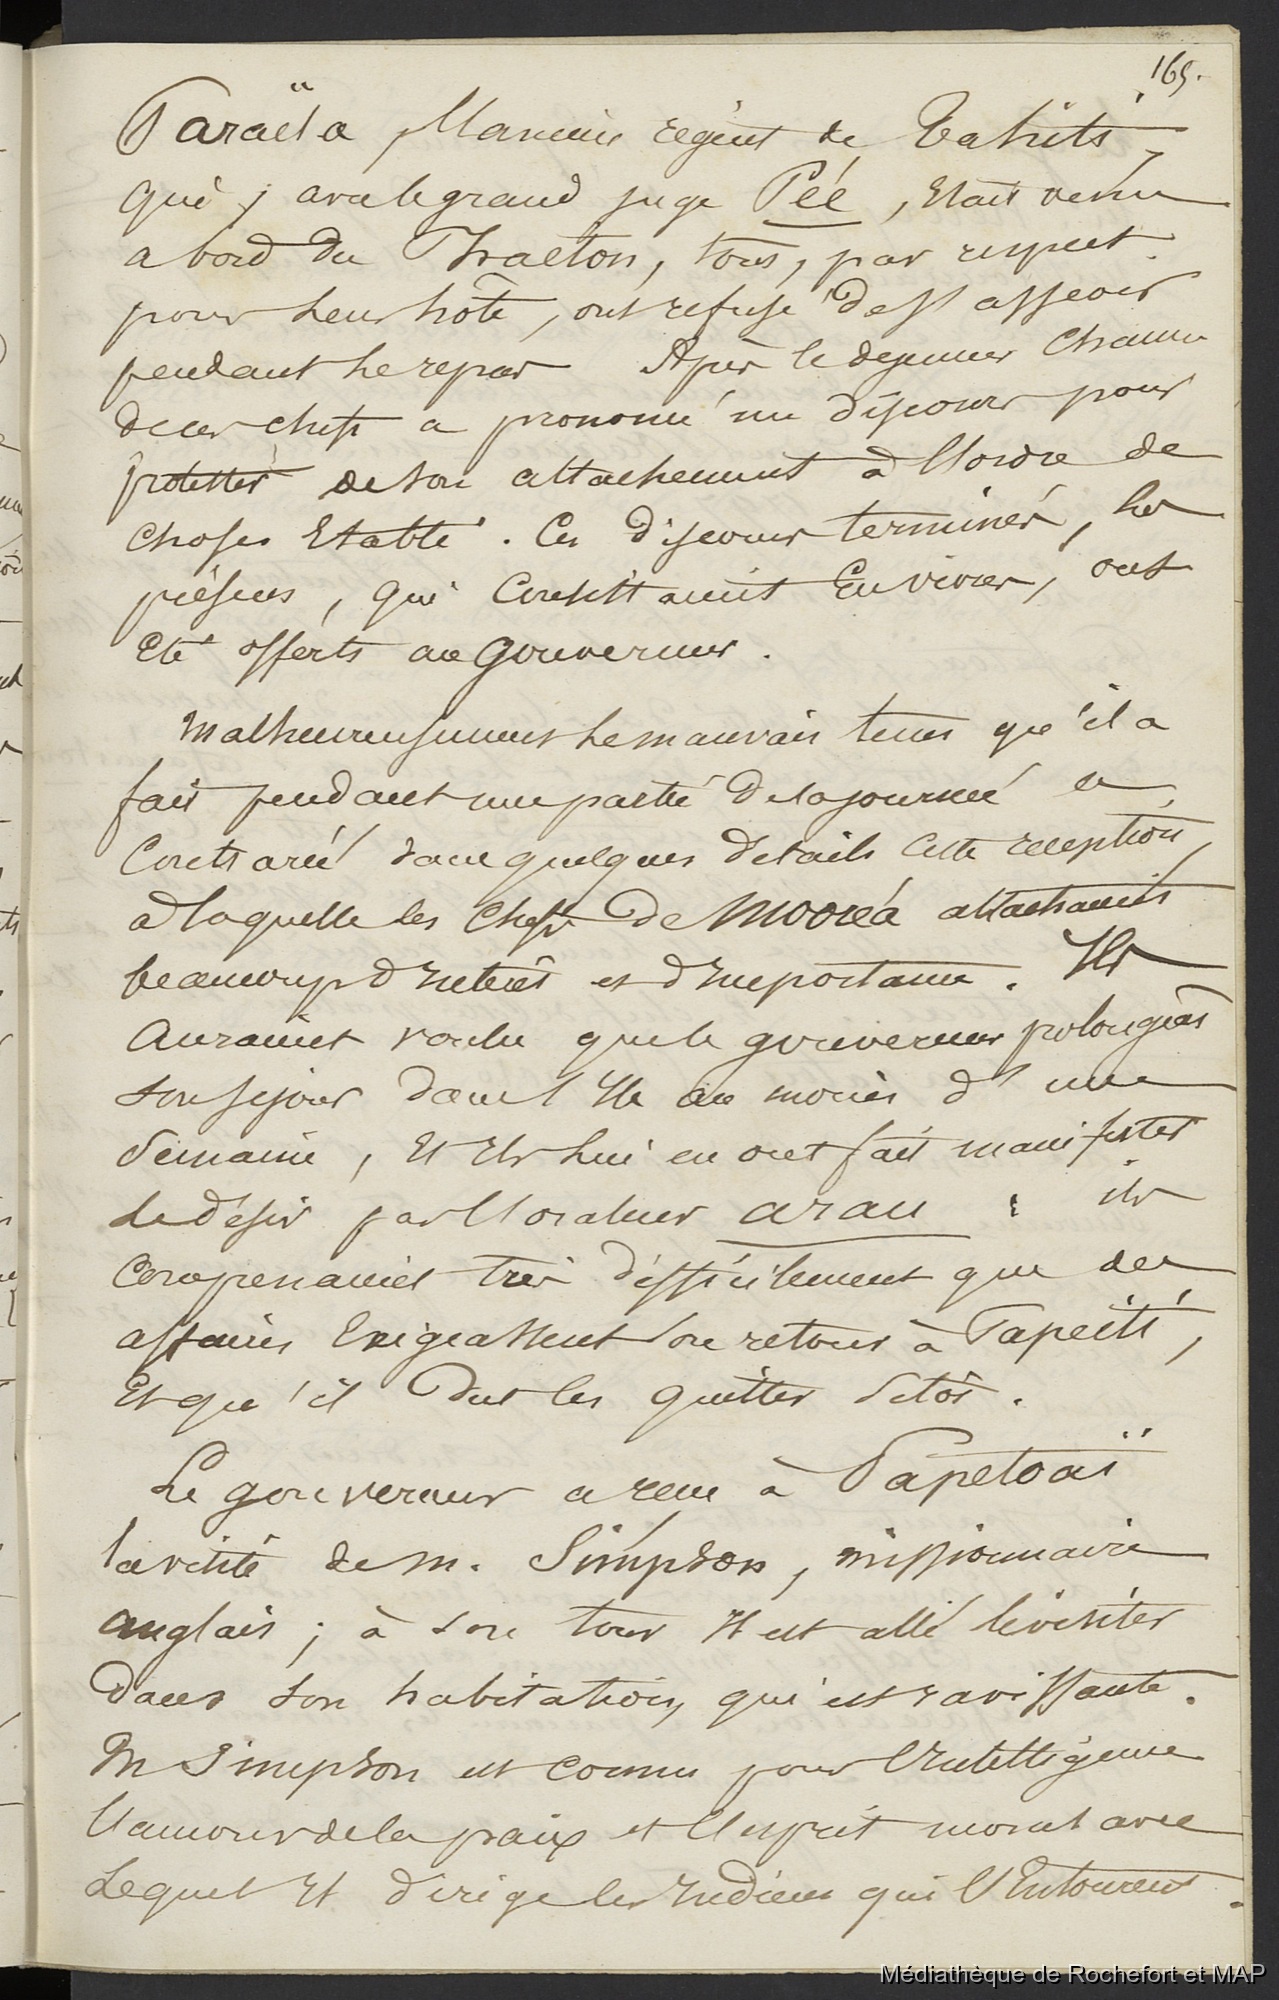 165.
Paraëta, l'ancien régent de Tahiti,
qui, avec le grand juge Péé, etait venu
a bord du Phaéton, tous, par respect
pour leur hôte, ont refusé de s'asseoir
pendant le repas Après le dejeuner chacun
de ces chefs a prononcé un discours pour
protester de son attachement à l'ordre de
choses Etabli. Ces discours terminés, les
présens, qui consistaient En vivres, ont
Eté offerts au Gouverneur.
Malheureusement le mauvais tems qu'il a
fait pendant une partie de la journée a
Contrarié dans quelques détails cette reception,
a laquelle les chefs de Mooréa attachaient
beaucoup d'interêt et d'importance. Ils
Auraient voulu que le gouverneur prolongeàt
son sejour dans l'Ile au moins d'une
Semaine, Et ils lui en ont fait manifester
le désir par l'orateur arau : ils
Comprenaient très difficilement que des
affaires Exigeassent son retour à Papeiti,
Et qu'il dut les quitter sitôt.
Le gouverneur a recu à Papetoaï
la visite de M. Simpson, missionnaire
anglais ; à son tour Il est allé le visiter
dans son habitation, qui est ravissante.
M Simpson est connu pour l'Intelligence
l'amour de la paix et l'esprit moral avec
Lequel Il dirige les Indiens qui l'Entourent.
Médiathèque de Rochefort et MAP